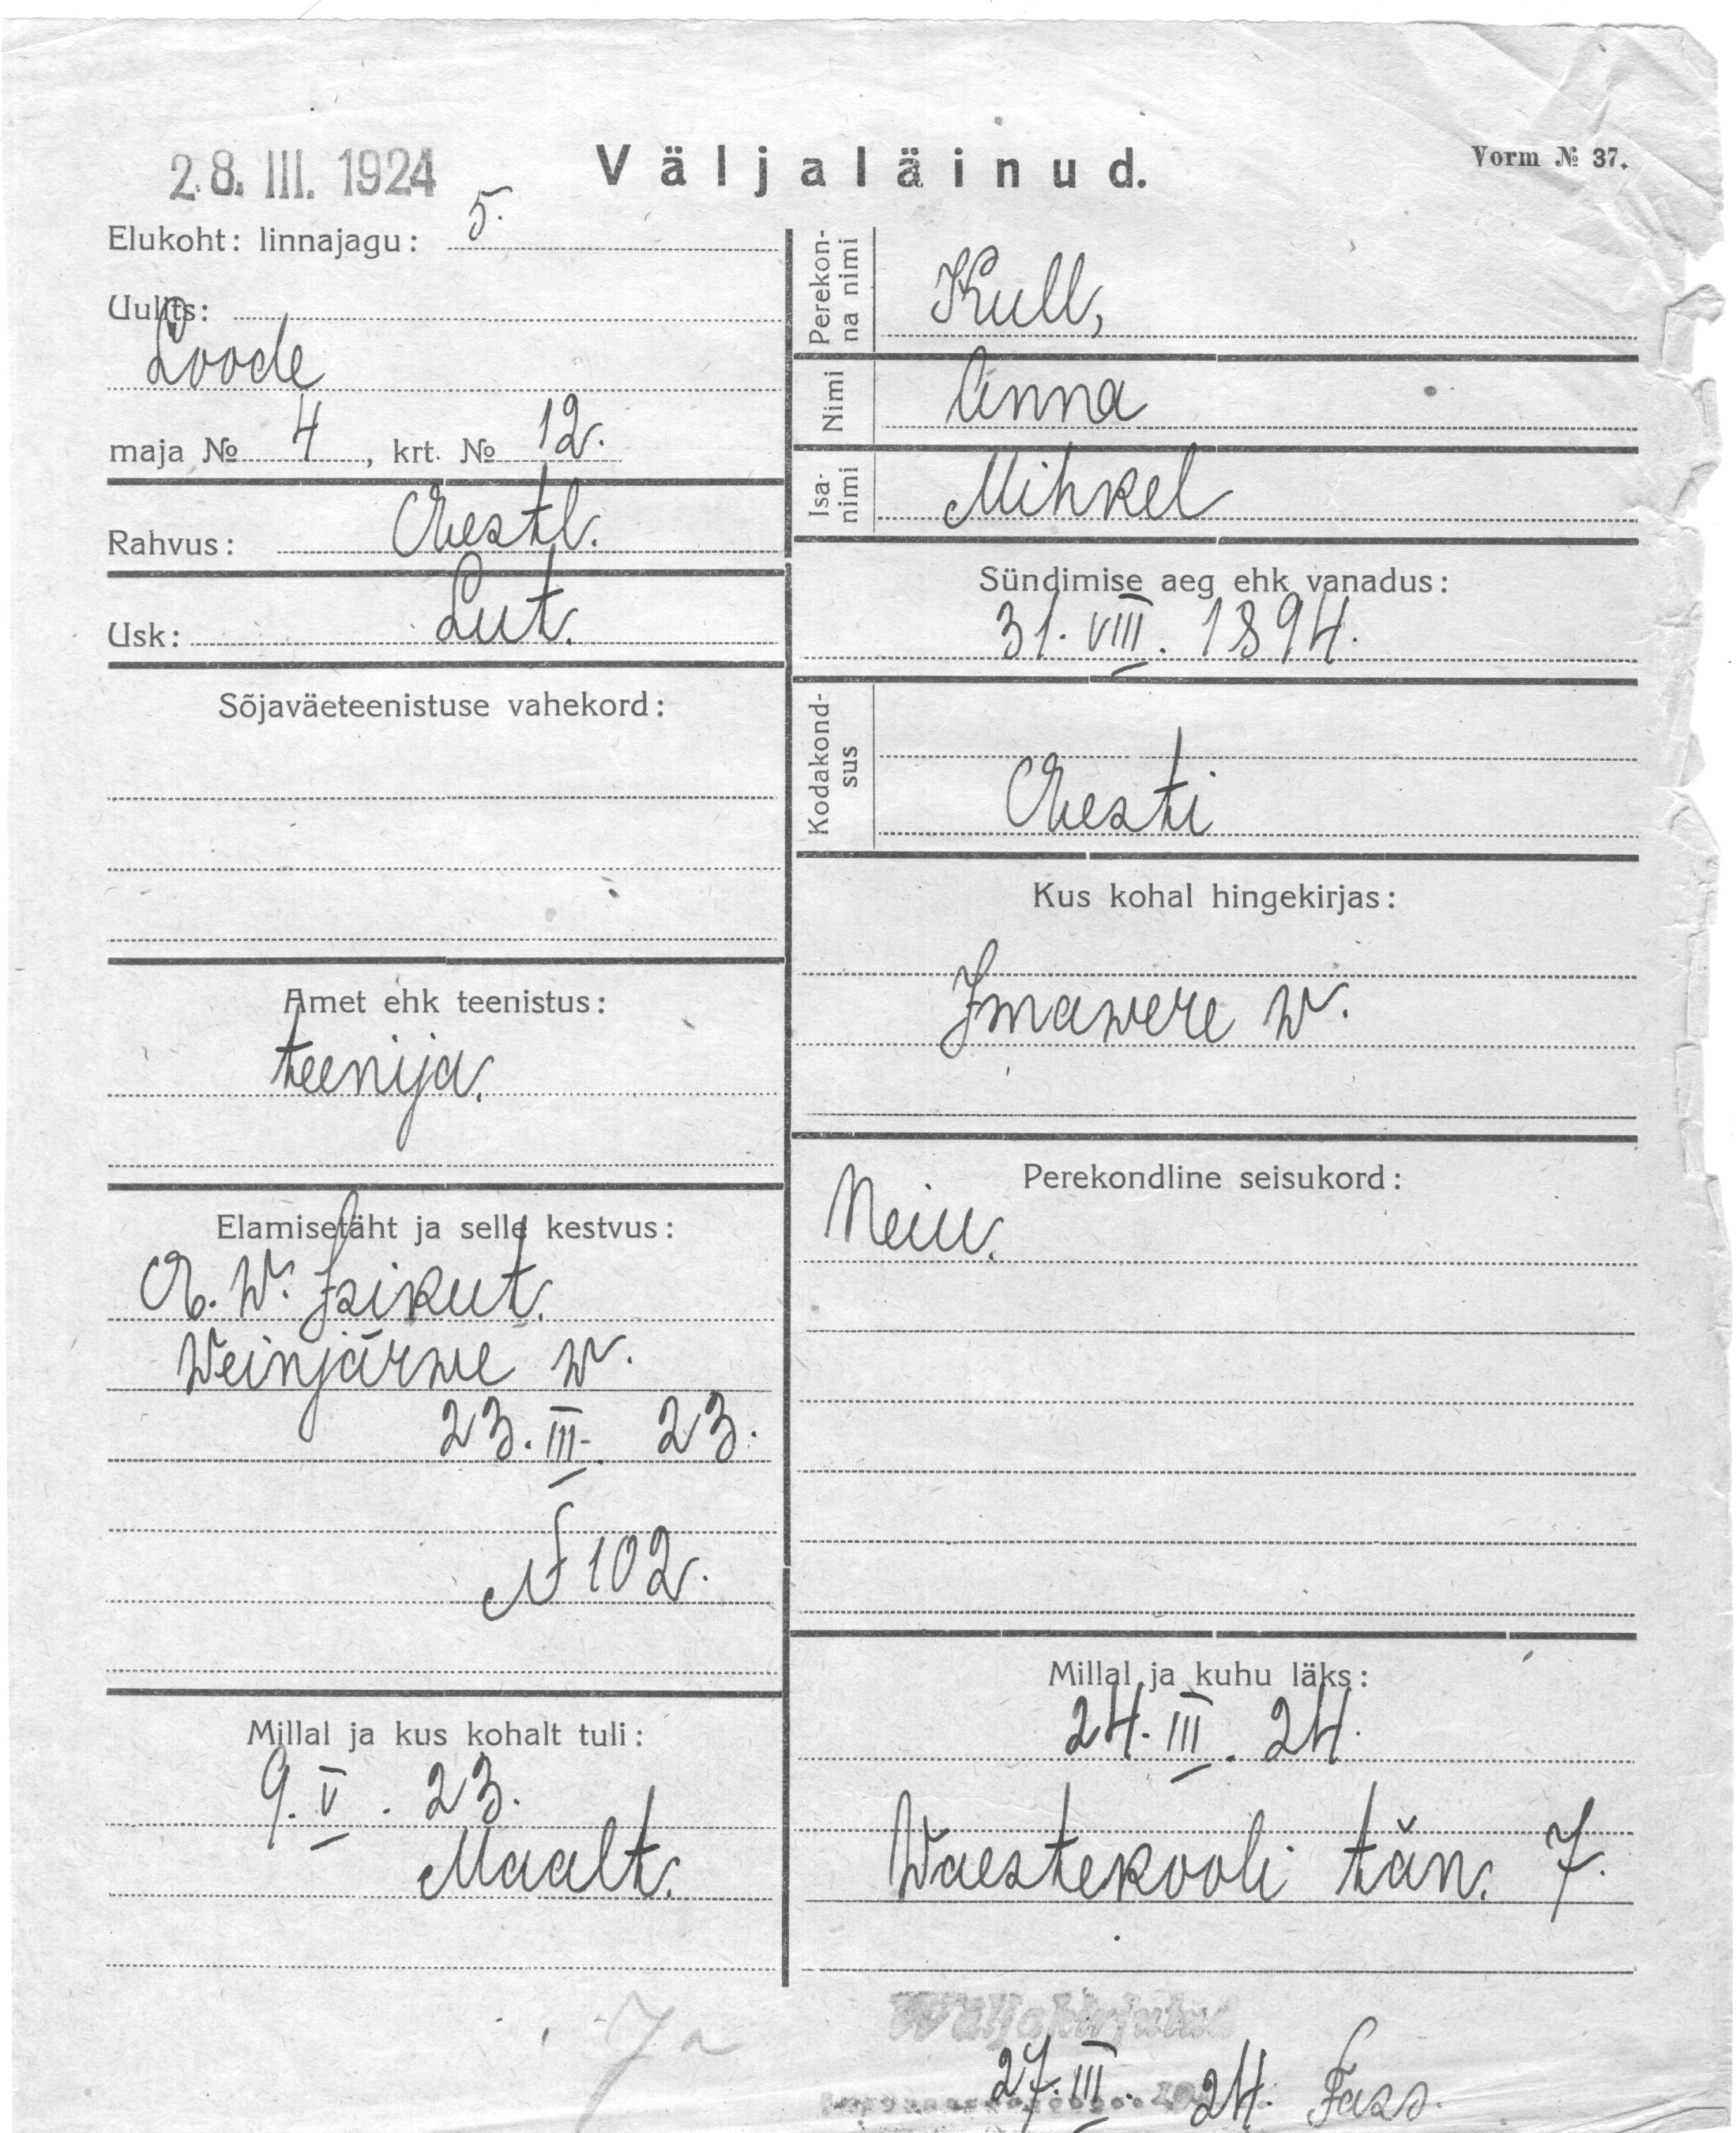 28. III. 1924
Väljaläinud.
Vorm № 37.
Elukoht: linnajagu: 5.
Uulits:
Loode
maja № 4, krt. № 12.
Rahvus: Eestl.
Usk: Lut.
Sõjaväeteenistuse vahekord:
Amet ehk teenistus:
teenija.
Elamisetäht ja selle kestvus:
E. W. Isikut.
Weinjärwe w.
23. III. 23.
№ 102.
Millal ja kus kohalt tuli:
9. V. 23.
Maalt.
Perekonna nimi
Kull,
Nimi
Anna
Isanimi
Mihkel
Sündimise aeg ehk vanadus:
31. VIII. 1894.
Kodakondsus
Eesti
Kus kohal hingekirjas:
Imawere w.
Perekondline seisukord:
Neiu.
Millal ja kuhu läks:
24. III. 24.
Waestekooli tän. 7.
Ja
Wäljakirjutud
27. III. 24.